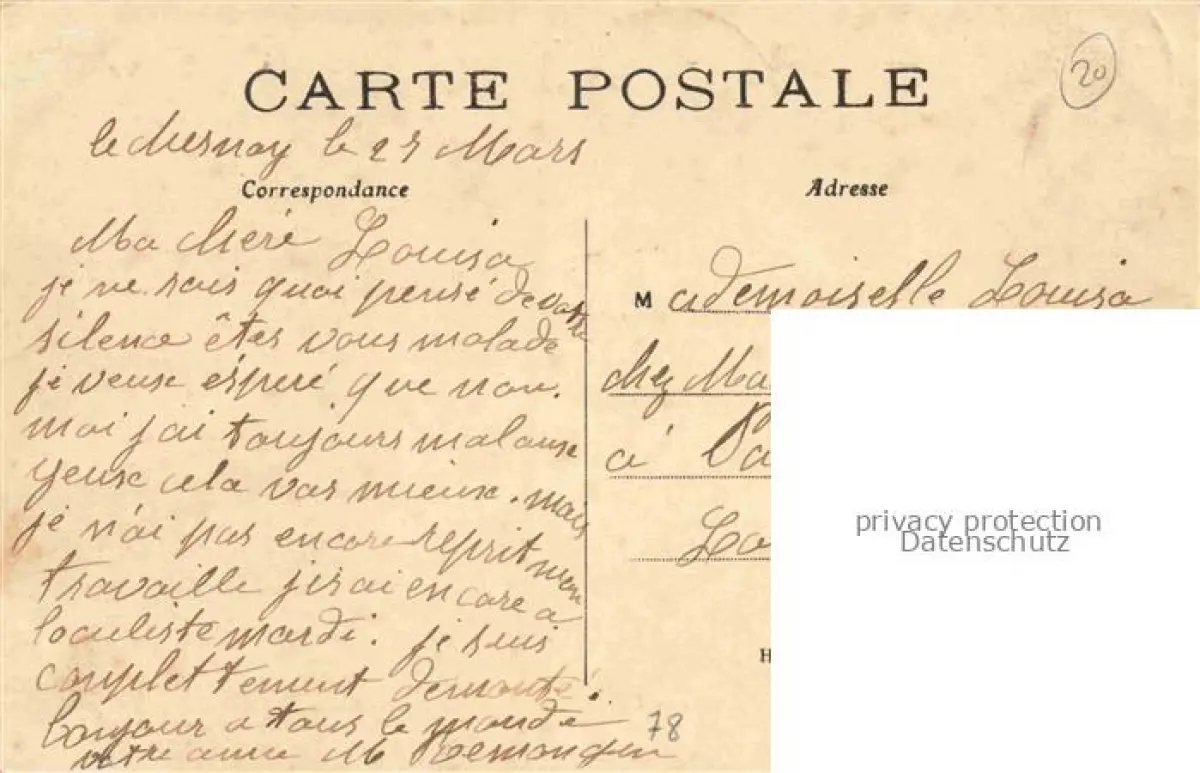 20
CARTE POSTALE
le Chesnay le 25 Mars
Correspondance
Adresse
Ma chéré Louisa
je ne sais quoi pensé de votre
silence êtes vous malade
je veux espéré que non.
moi j'ai toujours mal aux
yeux cela vas mieux. mais
je n'ai pas encore reprit mon
travaille j'irai encore a
loculiste mardi. je suis
complettement demonté.
bonjour a tous le monde
votre amie M
78
Mademoiselle Louisa
chez Ma
à Pa
Lo
H
privacy protection
Datenschutz